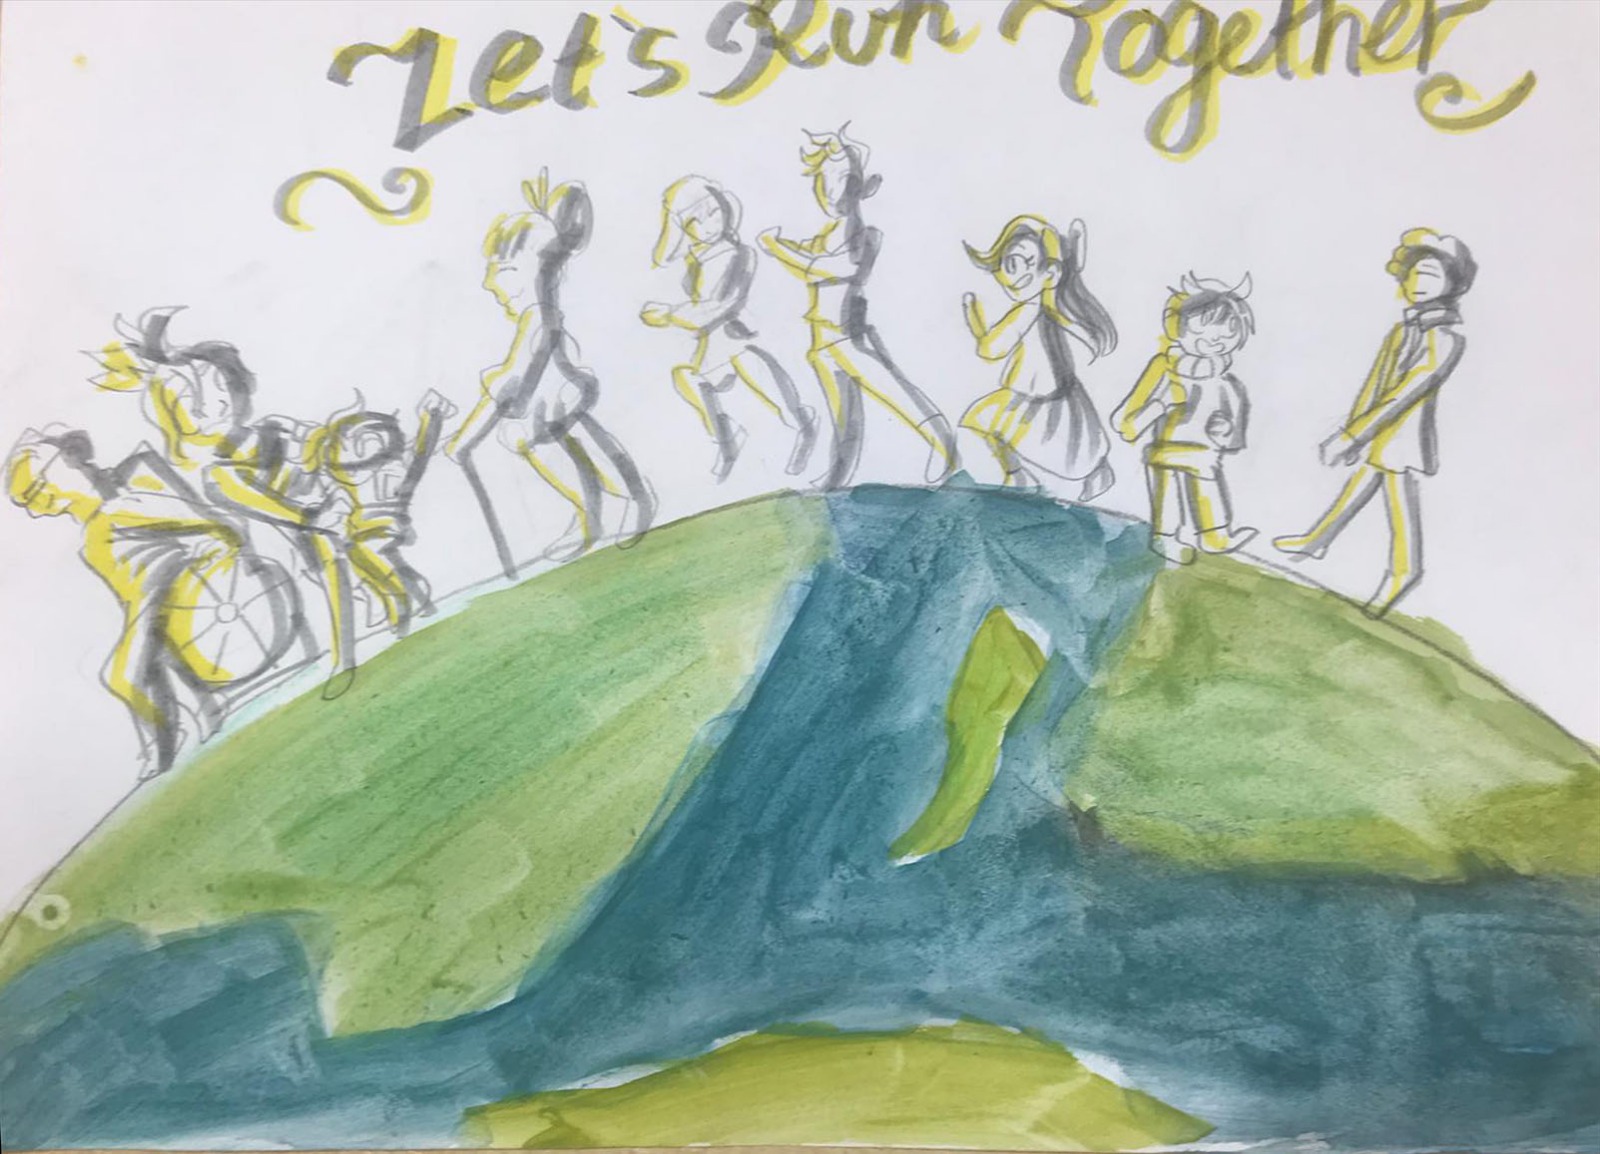 Let's Run Together